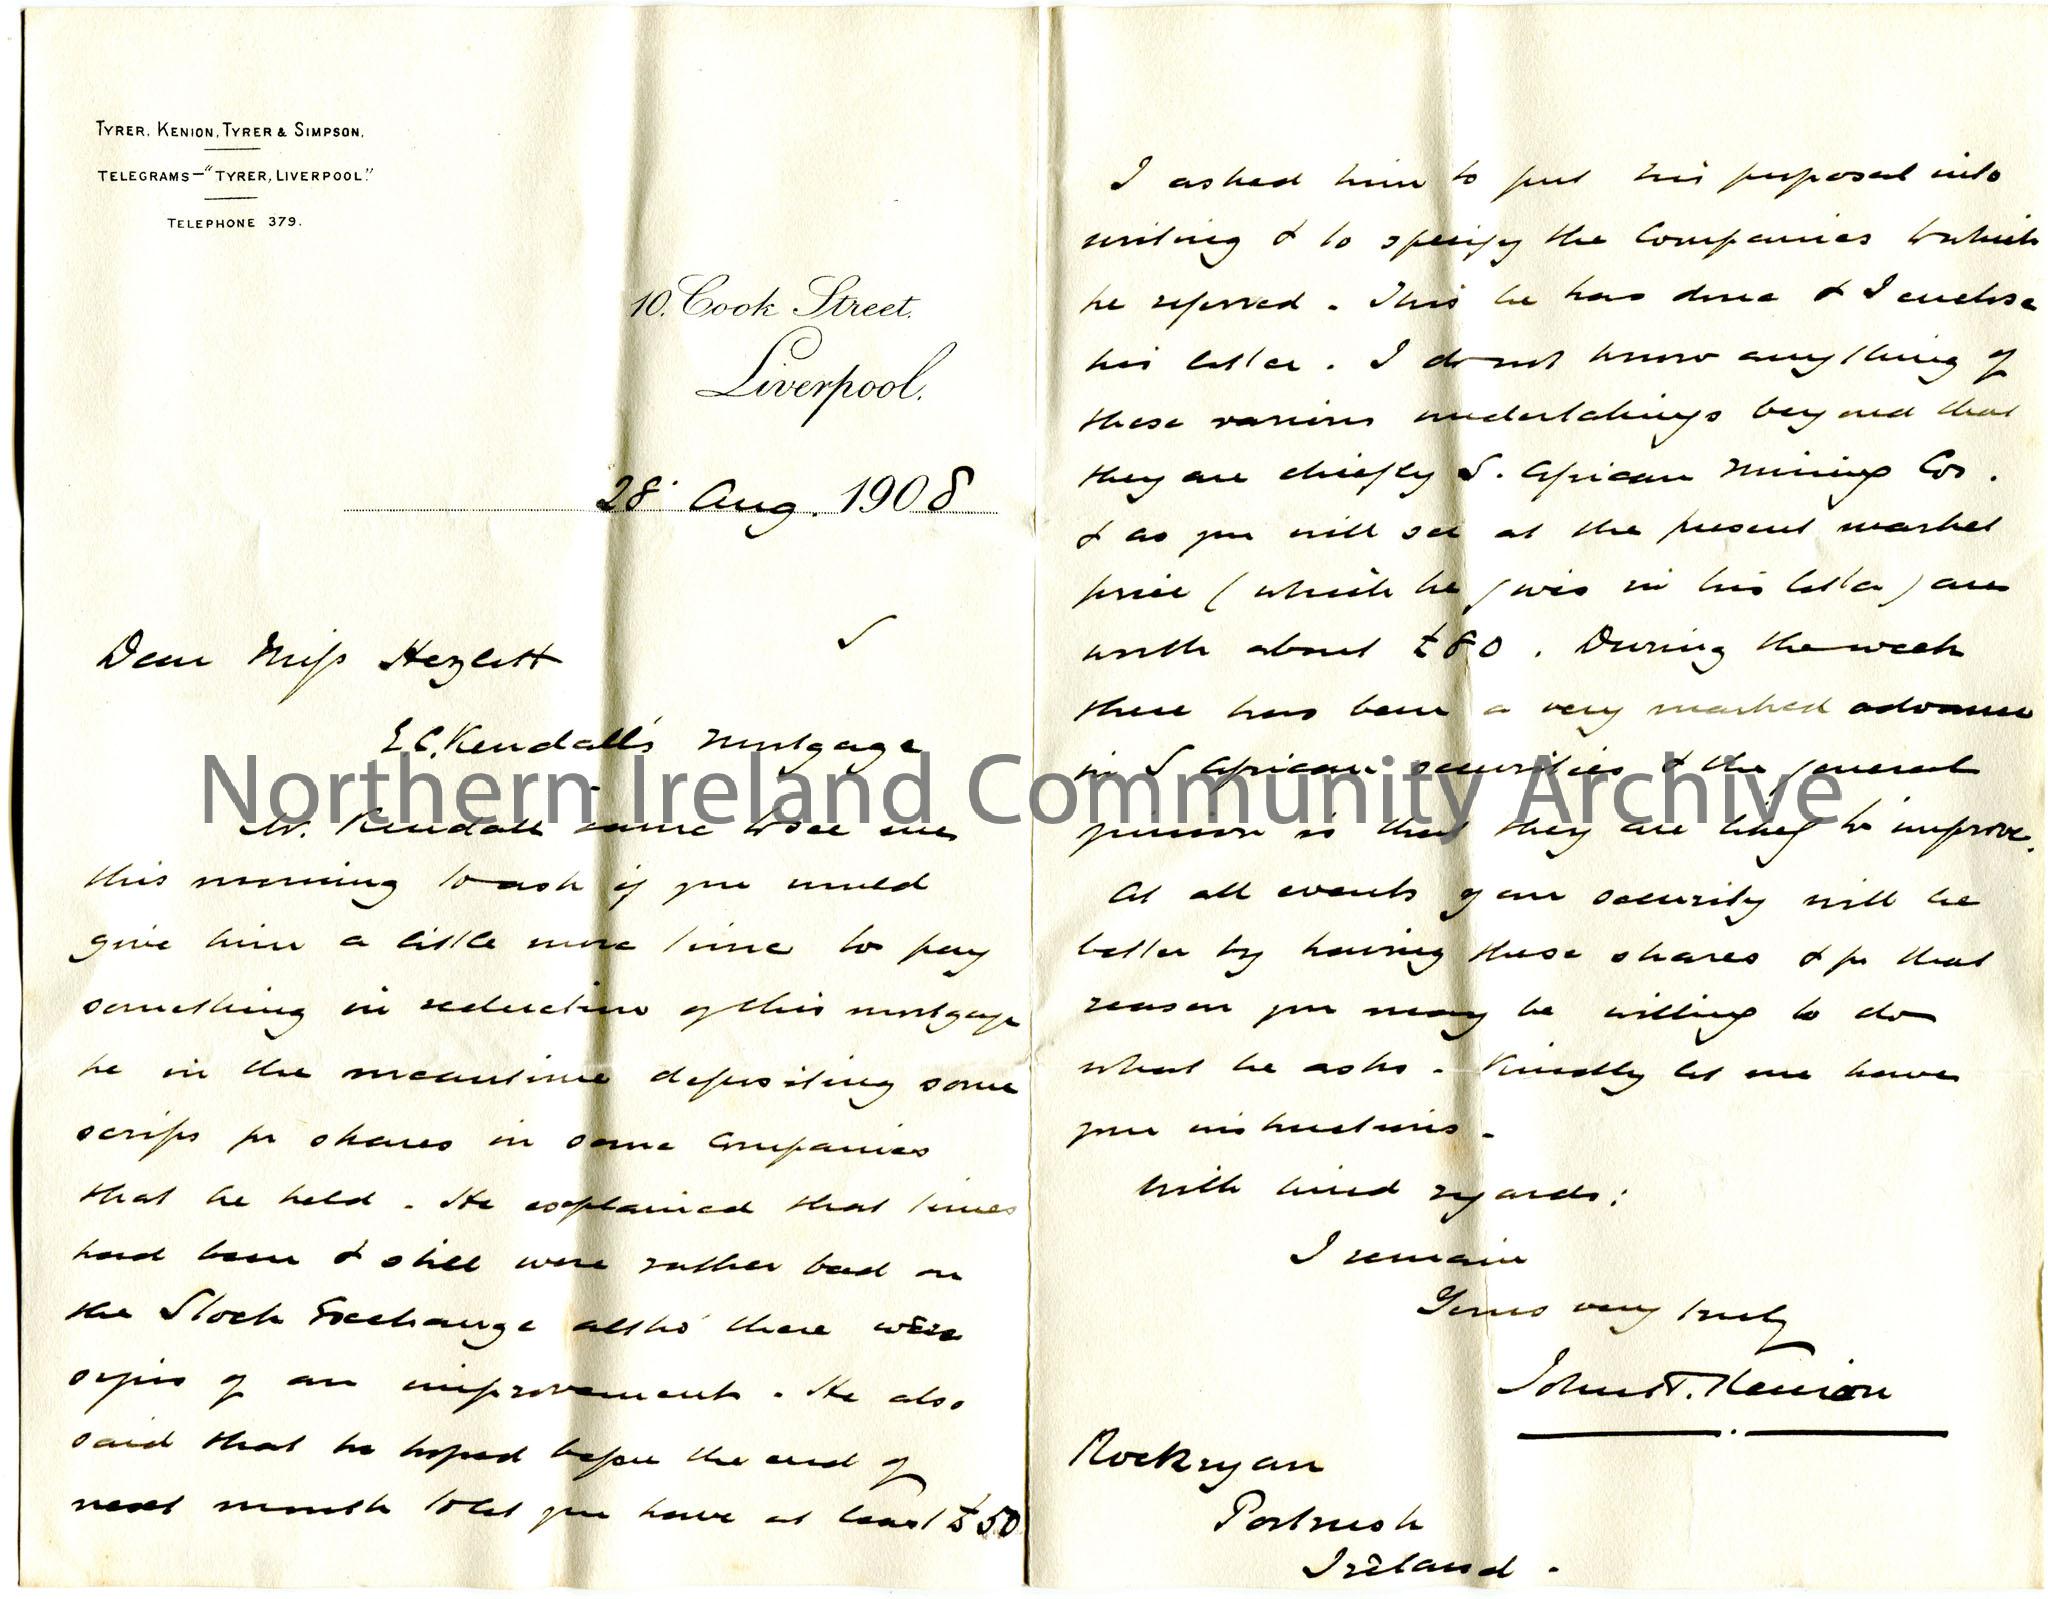 TYRER, KENION, TYRER & SIMPSON.
TELEGRAMS—"TYRER, LIVERPOOL."
TELEPHONE 379.
10. Cook Street.
Liverpool.
28 Aug. 1908
Dear Miss Hezlett
E C. Kendall's Mortgage
Mr. Kendall came to see me
this morning to ask if you would
give him a little more time to pay
something in reduction of this mortgage
he in the meantime depositing some
scrips for shares in some Companies
that he held. He explained that times
had been & still were rather bad on
the Stock Exchange altho' there were
signs of an improvement. He also
said that he hoped before the end of
next month to let you have at least £50
I asked him to put his proposal into
writing & to specify the Companies to which
he referred. This he has done & I enclose
his letter. I do not know anything of
these various undertakings beyond that
they are chiefly S. African Mining Cos.
& as you will see at the present market
price (which he gives in his letter) are
worth about £80. During the week
there has been a very marked advance
in S African securities & the general
opinion is that they are likely to improve.
At all events your security will be
better by having these shares & for that
reason you may be willing to do
what he asks. Kindly let me have
your instructions.
With kind regards:
I remain
Yours very truly
John T. Kenion
Rockryan
Portrush
Ireland.
Northern Ireland Community Archive